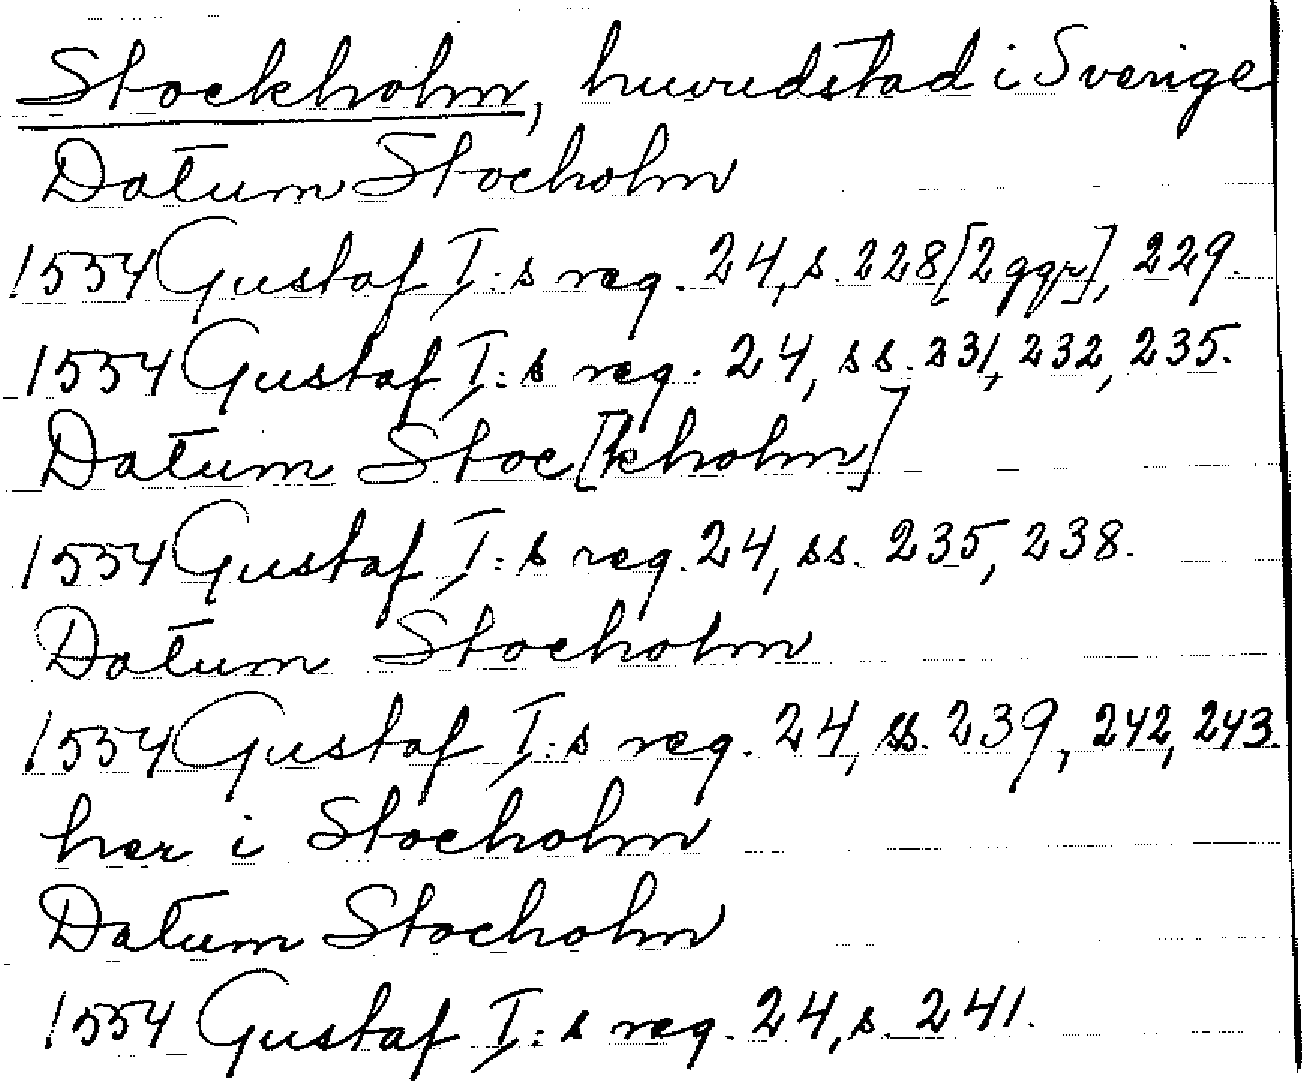 Stockholm, huvudstad i Sverige
Datum Stocholm
1554 Gustaf I:s reg. 24, s. 228 [2 ggr], 229.
1554 Gustaf I:s reg. 24, ss. 231, 232, 235.
Datum Stoc[kholm]
1554 Gustaf I:s reg. 24, ss. 235, 238.
Datum Stocholm
1554 Gustaf I:s reg. 24, ss. 239, 242, 243.
her i Stocholm
Datum Stocholm
1554 Gustaf I:s reg. 24, s. 241.